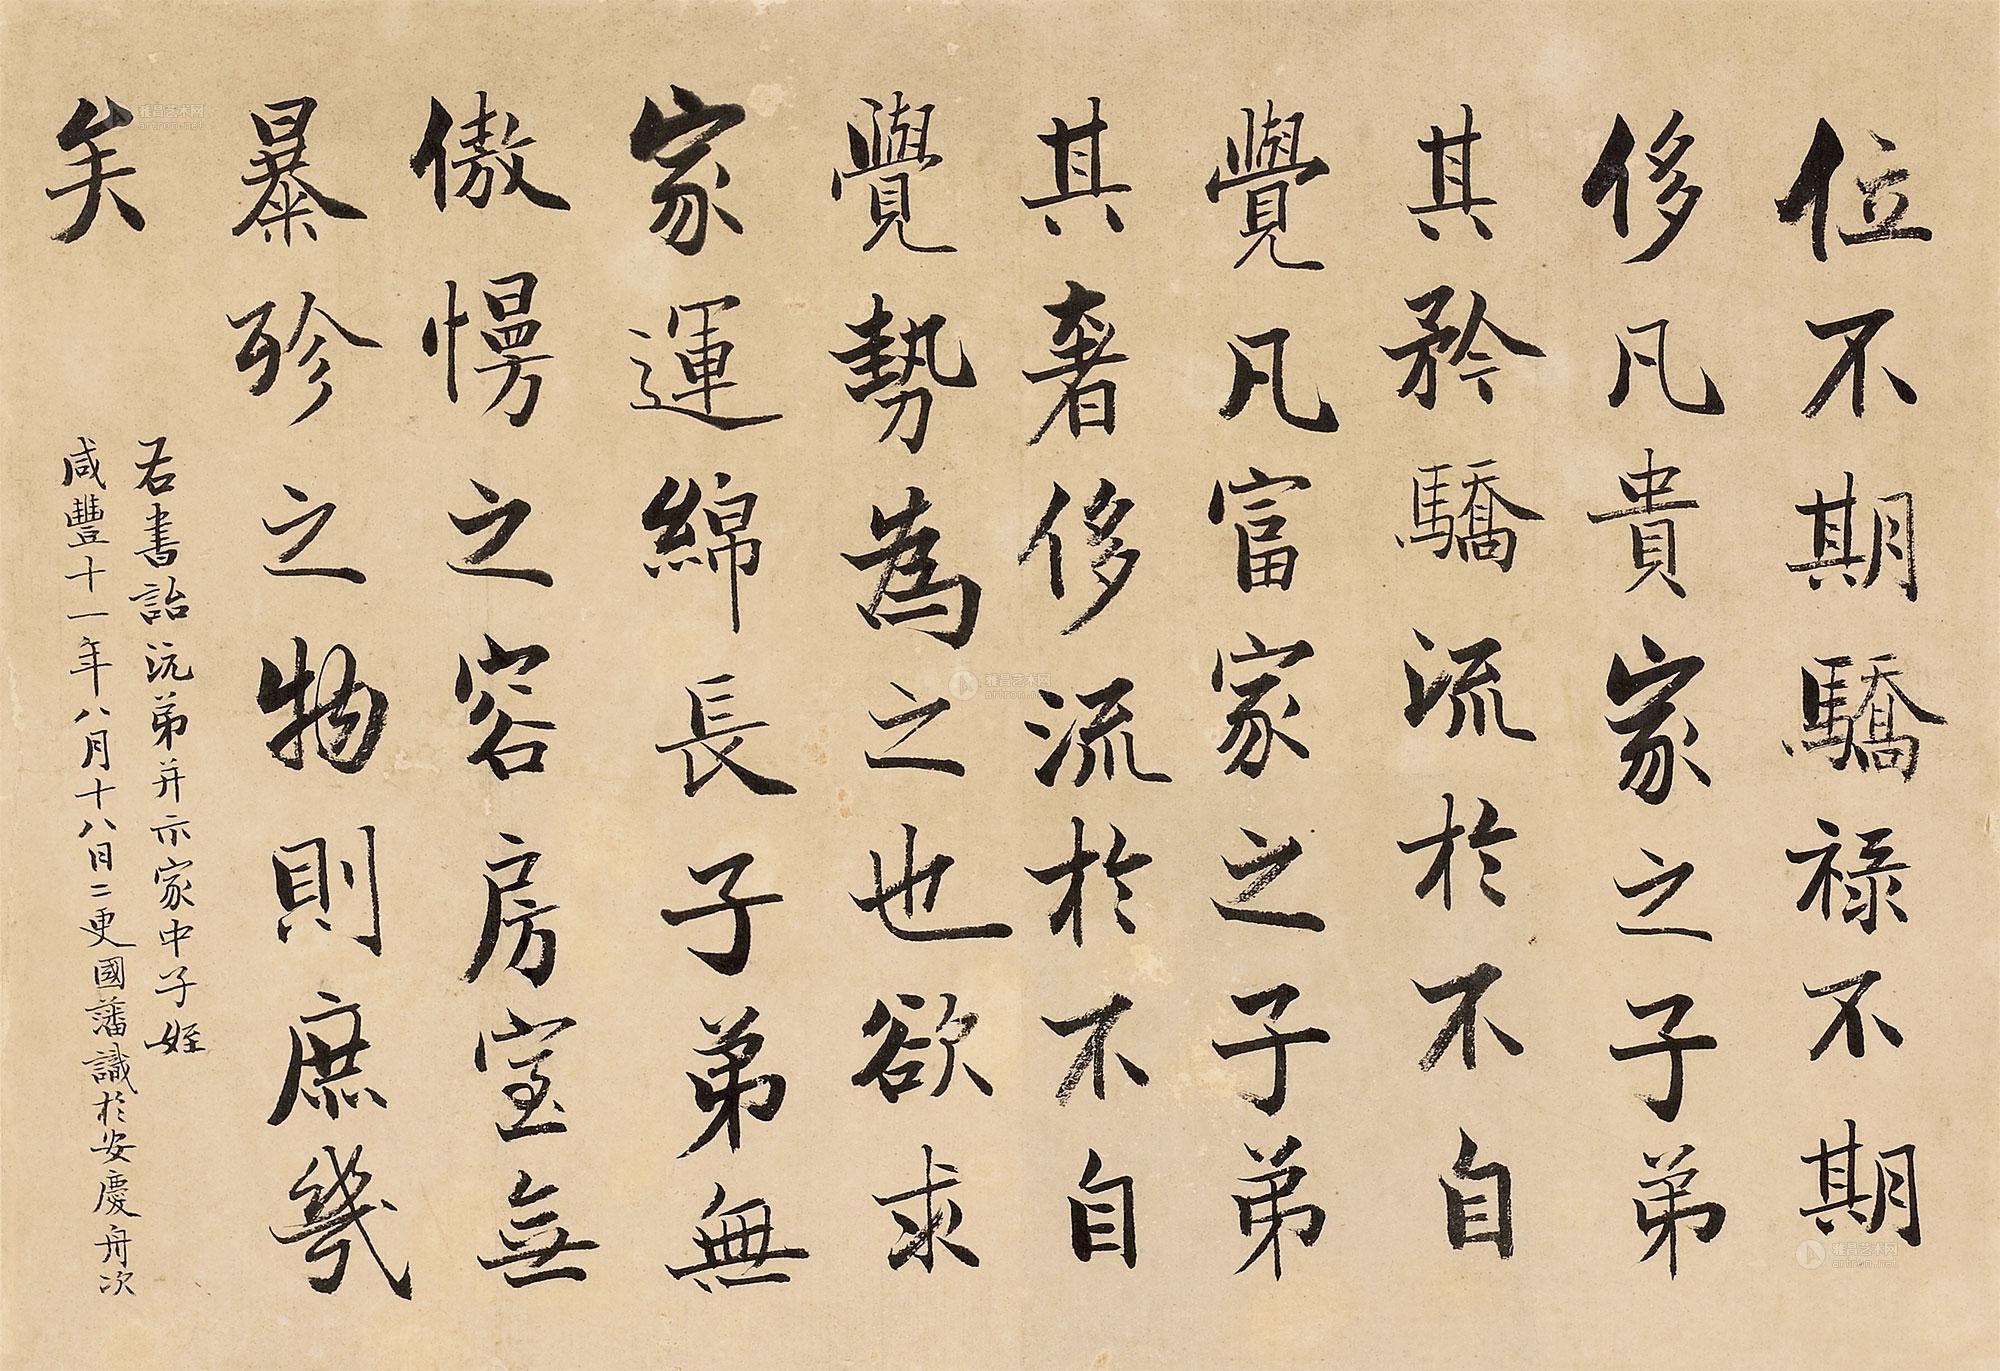 位不期驕禄不期
侈凡貴家之子弟
其矜驕流於不自
覺凡富家之子弟
其奢侈流於不自
覺勢為之也欲求
家運綿長子弟無
傲慢之容房室無
暴殄之物則庶幾
矣
右書詒沅弟并示家中子姪
咸豐十一年八月十八日二更國藩識於安慶舟次
雅昌艺术网
artron.net
雅昌艺术网
artron.net
雅昌艺术网
artron.net